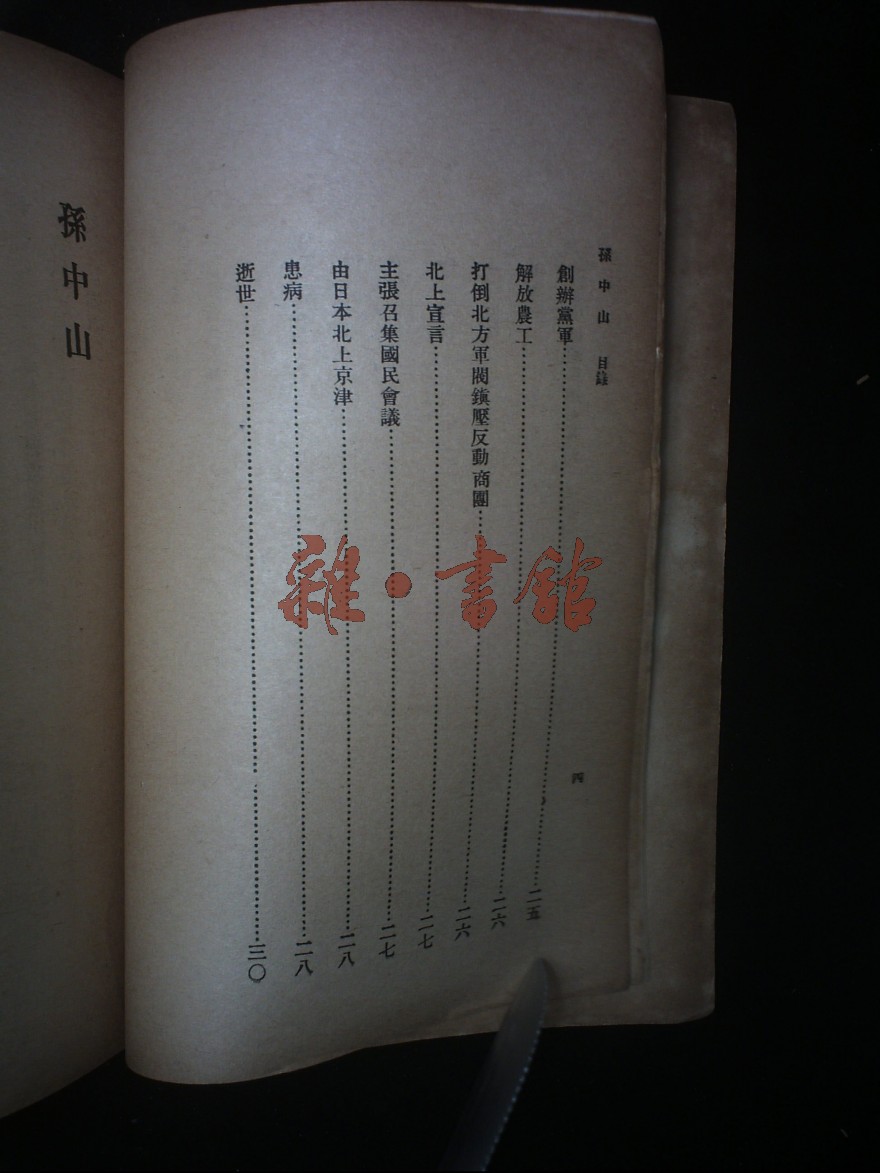 孫中山 目錄
創辦黨軍……二五
解放農工……二六
打倒北方軍閥鎮壓反動商團……二六
北上宣言……二七
主張召集國民會議……二七
由日本北上京津……二八
患病……二八
逝世……三〇
四
孫中山
雜·書館